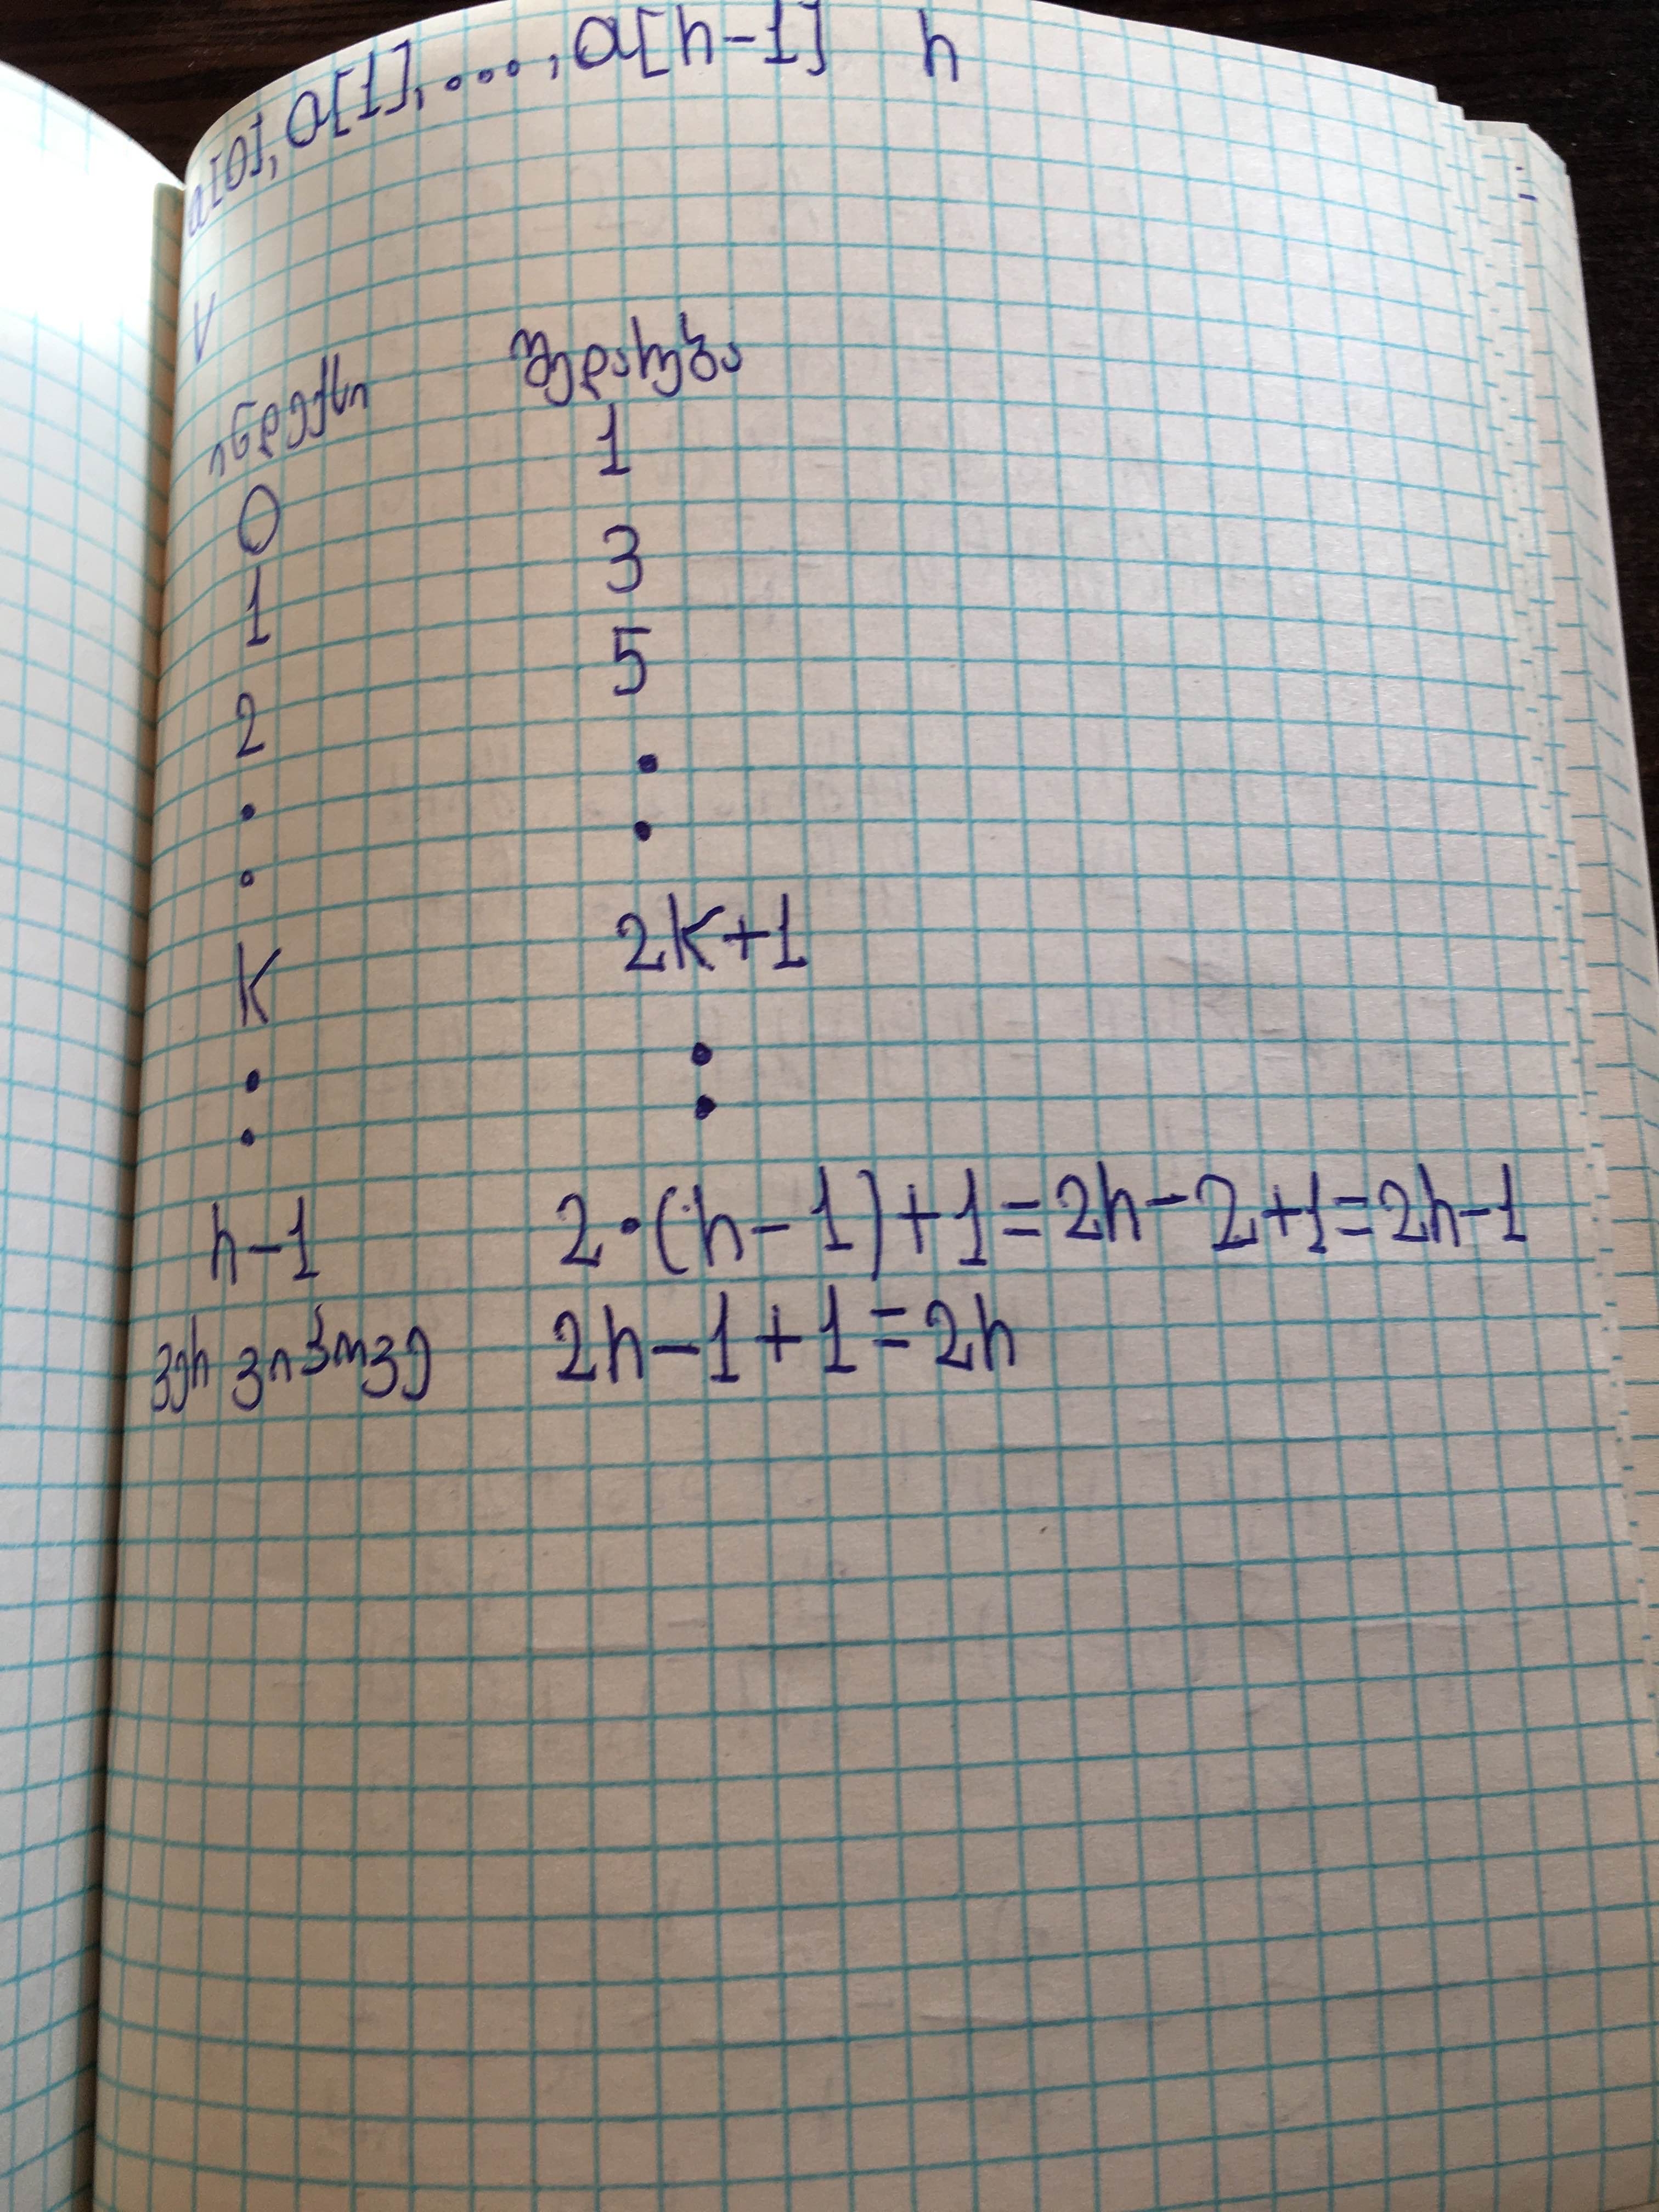 a[0], a[1], ..., a[n-1] n
V
ინდექსი შედარება
0 1
1 3
2 5
. .
. .
K 2K+1
. .
. .
n-1 2·(n-1)+1=2n-2+1=2n-1
ვერ ვიპოვე 2n-1+1=2n